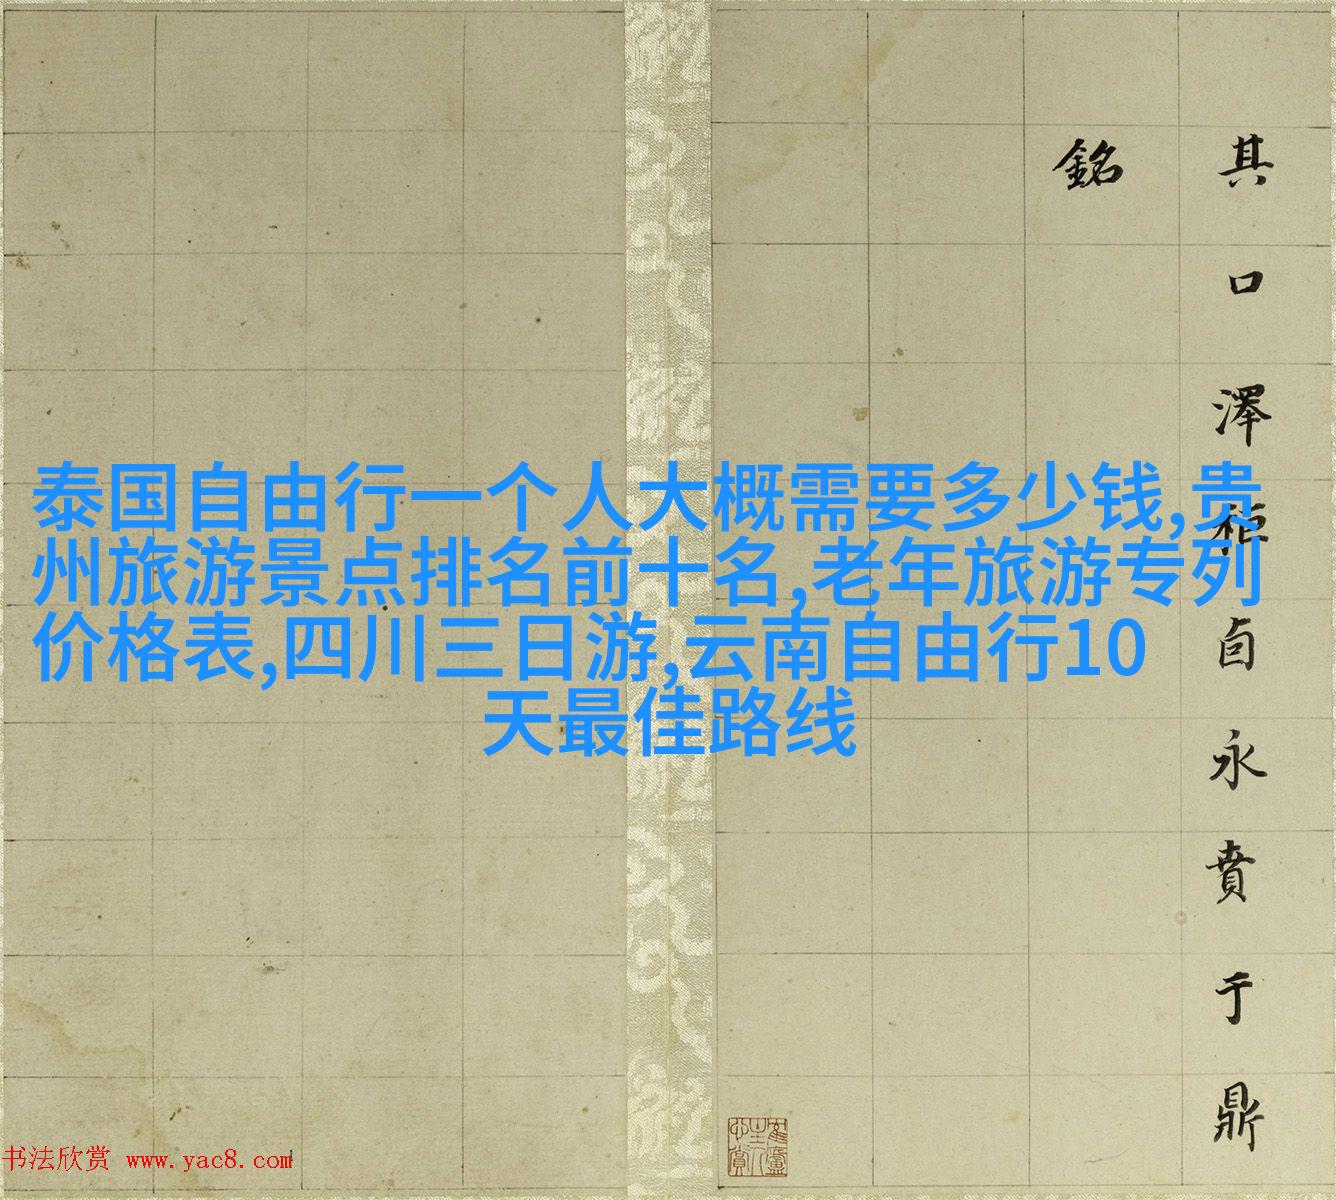 泰国自由行一个人大概需要多少钱,贵
州旅游景点排名前十名,老年旅游专列
价格表,四川三日游,云南自由行10
天最佳路线
其口澤秬卣永賁于鼎
銘
书法欣赏 www.yac8.com